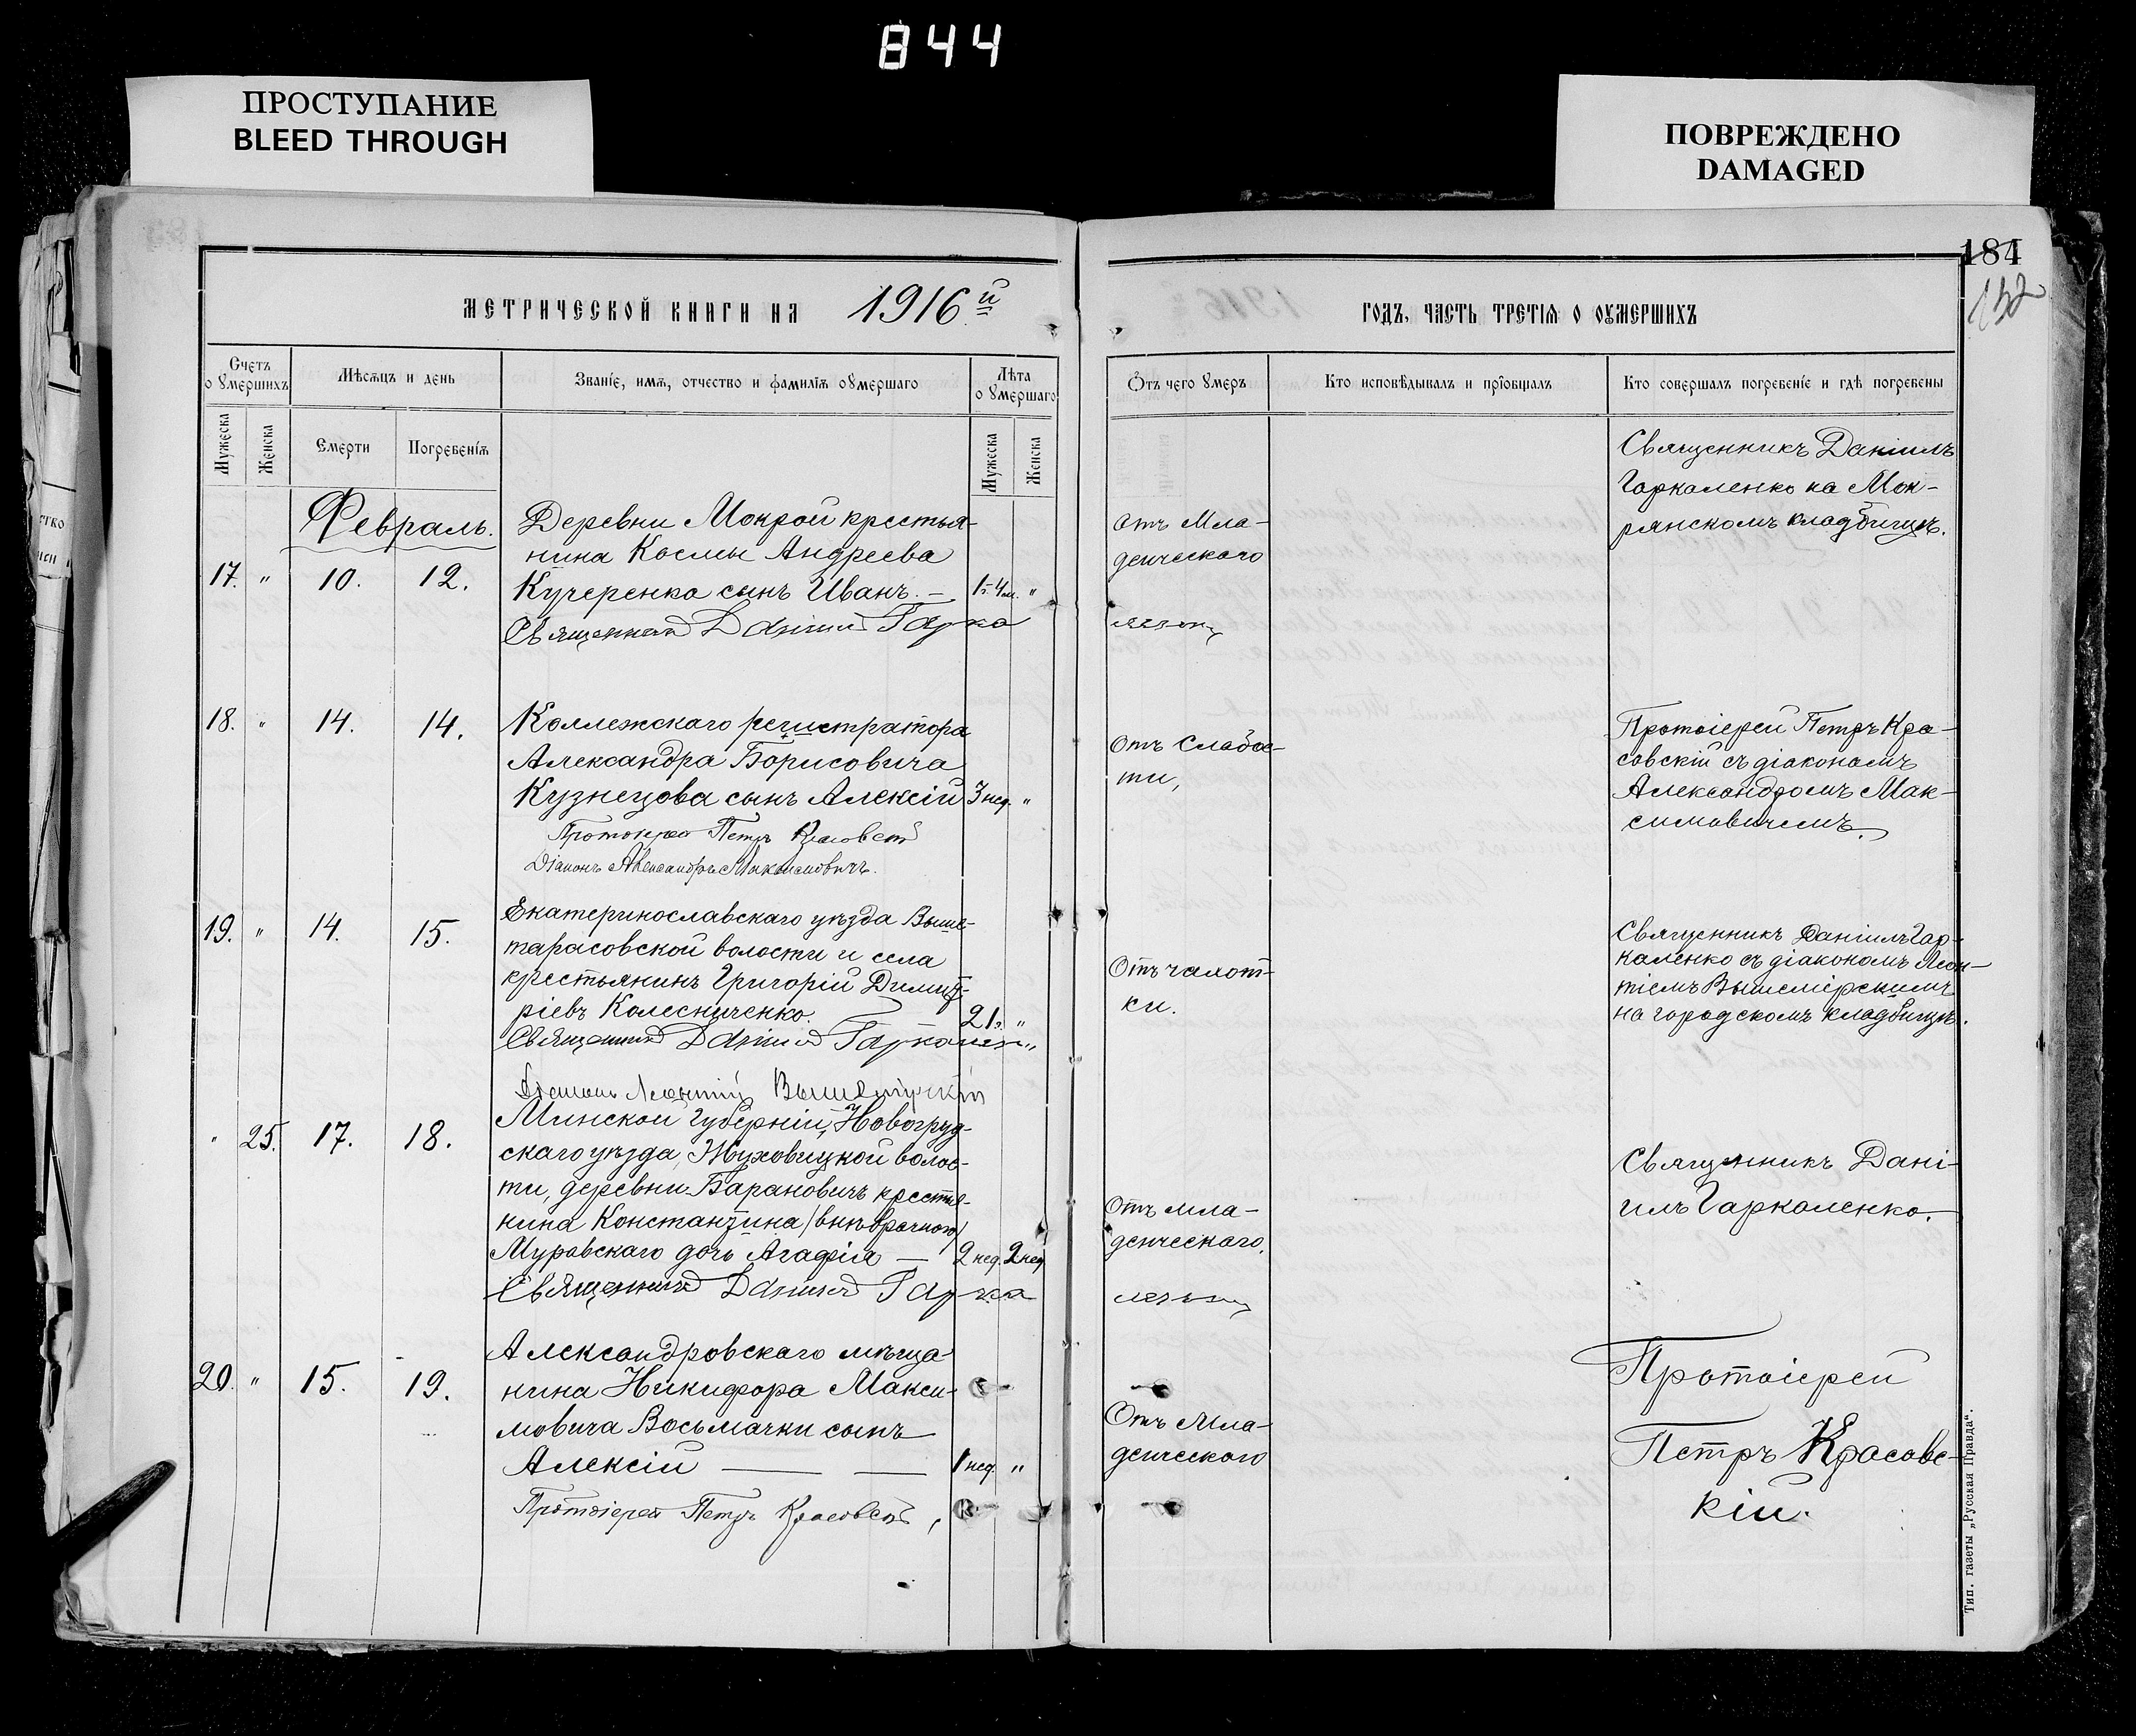 844
ПРОСТУПАНИЕ
BLEED THROUGH
ПОВРЕЖДЕНО
DAMAGED
184
МЕТРИЧЕСКОЙ КНИГИ НА 1916й
ГОДЪ, ЧАСТЬ ТРЕТІѦ О ОУМЕРШИХЪ
Счетъ о умершихъ
Мѣсѧцъ и день
Званіе, имѧ, отчество и фамиліѧ оумершаго
Лѣта о умершаго
Отъ чего умеръ
Кто исповѣдывалъ и пріобщалъ
Кто совершалъ погребеніе и гдѣ погребены
Мужеска
Женска
Смерти
Погребеніѧ
Мужеска
Женска
Февраль.
17. " 10. 12.
Деревни Мокрой крестья-
нина Космы Андреева
Кучеренка сынъ Иванъ. — 1г. 4м. "
Священникъ Даніилъ Гарка
Отъ Мла-
денческаго
ленко
Священникъ Даніилъ
Гаркаленко на Мок-
рянскомъ кладбищѣ.
18. " 14. 14.
Коллежскаго регистратора
Александра Борисовича
Кузнецова сынъ Алексій 3 нед. "
Протоіерей Петръ Красовскій
Діаконъ Александръ Максимовичъ.
Отъ слабос-
ти,
Протоіерей Петръ Кра-
совскій съ діакономъ
Александромъ Мак-
симовичемъ.
19. " 14. 15.
Екатеринославскаго уѣзда Выше-
тарасовской волости и села
крестьянинъ Григорій Димит-
ріевъ Колесниченко. 21г. "
Священникъ Даніилъ Гаркален
Діаконъ Леонтій Вышемірскій
Отъ чахот-
ки.
Священникъ Даніилъ Гар-
каленко съ діакономъ Леон-
тіемъ Вышемірскимъ
на городскомъ кладбищѣ.
" 25. 17. 18.
Минской губерніи, Новогруд-
скаго уѣзда, Жуховицкой волос-
ти, деревни Барановичъ крестья-
нина Константина (внѣбрачною)
Муравскаго дочь Агафія — 2 нед. 2 нед.
Священникъ Даніилъ Гарка
Отъ мла-
денческаго.
ленко
Священникъ Дані-
илъ Гаркаленко.
20. " 15. 19.
Александровскаго мѣща
нина Никифора Макси-
мовича Восьмачки сынъ
Алексій — — 1 нед. "
Протоіерей Петръ Красовскій
Отъ Мла-
денческаго
Протоіерей
Петръ Красовс-
кій.
Тип. газеты „Русская Правда".